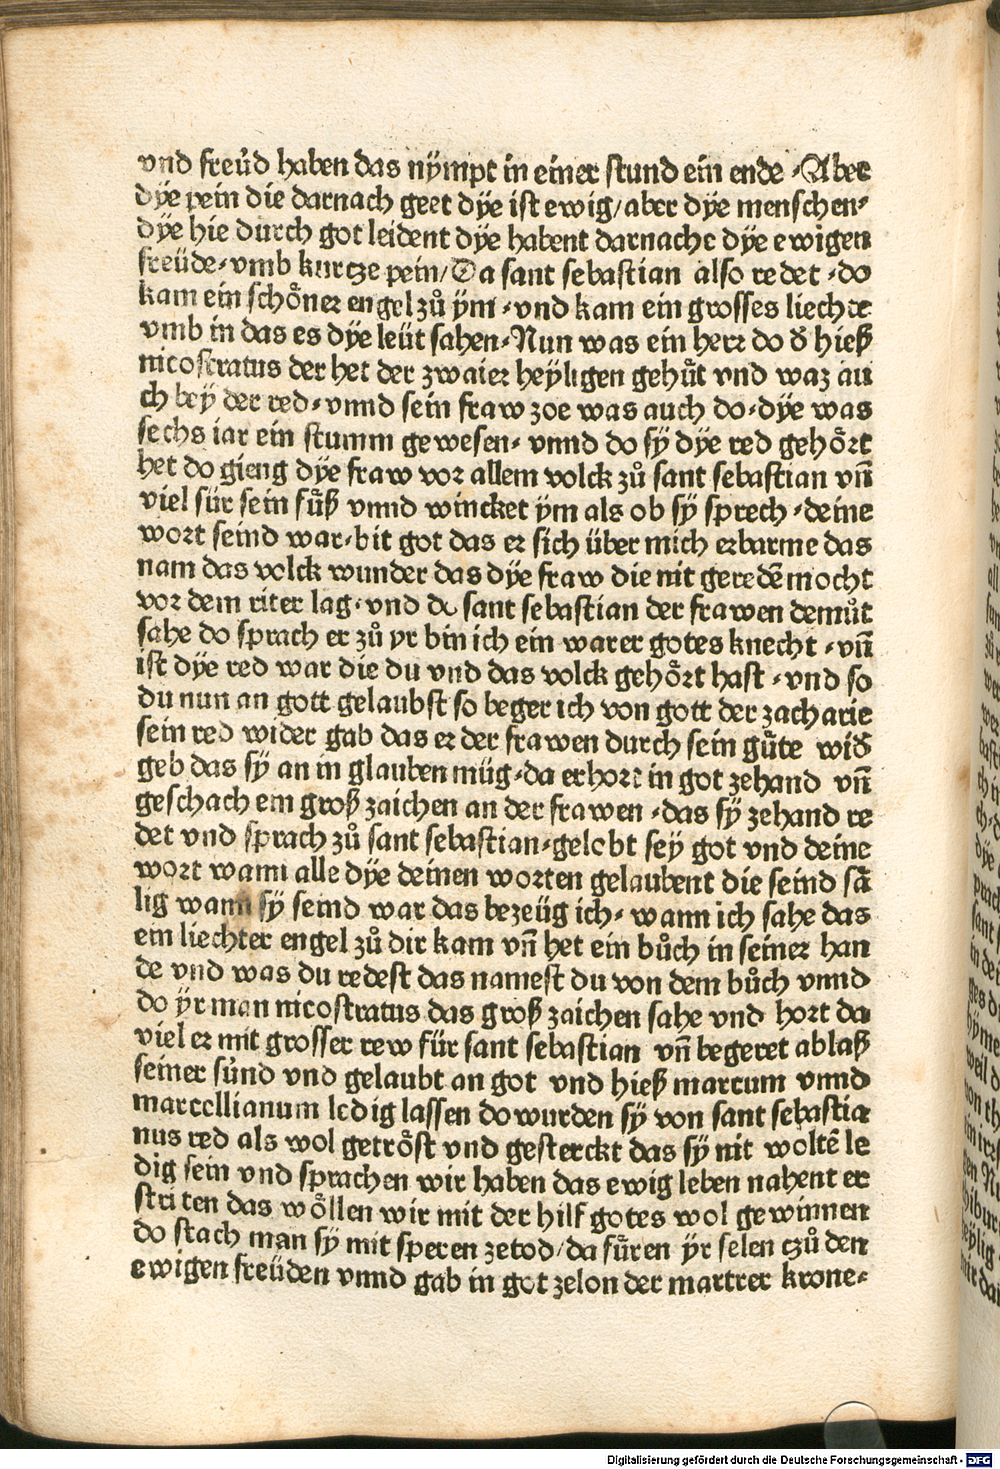 vnd freüd haben das nÿmpt in einer stund ein ende · Aber
dÿe pein die darnach geet dÿe ist ewig/ aber dÿe menschen·
dÿe hie durch got leident dÿe habent darnache dÿe ewigen
freüde· vmb kurcze pein/ Da sant sebastian also redet · do
kam ein schöner engel zů ÿm · vnd kam ein grosses liecht
vmb in das es dÿe leüt sahen · Nun was ein herr do d̕ hieß
nicostratus der het der zwaier heÿligen gehů̈t vnd waz au
ch beÿ der red· vnnd sein fraw zoe was auch do· dÿe was
sechs iar ein stumm gewesen· vnnd do sÿ dÿe red gehört
het do gieng dÿe fraw vor allem volck zů sant sebastian vn̄
viel für sein fů̈ß vnnd wincket ÿm als ob sÿ sprech · deine
wort seind war· bit got das er sich über mich erbarme das
nam das volck wunder das dÿe fraw die nit geredē mocht
vor dem riter lag· vnd do sant sebastian der frawen demůt
sahe do sprach er zů yr bin ich ein warer gotes knecht · vn̄
ist dÿe red war die du vnd das volck gehört hast · vnd so
du nun an gott gelaubst so beger ich von gott der zacharie
sein red wider gab das er der frawen durch sein gů̈te wid̕
geb das sÿ an in glauben müg· da erhort in got zehand vn̄
geschach ein groß zaichen an der frawen · das sÿ zehand re
det vnd sprach zů sant sebastian· gelobt sey got vnd deine
wort wann alle dÿe deinen worten gelaubent die seind sä
lig wann sÿ seind war das bezeüg ich· wann ich sahe das
ein liechter engel zů dir kam vn̄ het ein bůch in seiner han
de vnd was du redest das namest du von dem bůch vnnd
do ÿr man nicostratus das groß zaichen sahe vnd hort da
viel er mit grosser rew für sant sebastian vn̄ begeret ablaß
seiner sünd vnd gelaubt an got vnd hieß marcum vnnd
marcellianum ledig lassen do wurden sÿ von sant sebastia
nus red als wol getröst vnd gesterckt das sÿ nit woltē le
dig sein vnd sprachen wir haben das ewig leben nahent er
striten das wöllen wir mit der hilf gotes wol gewinnen
do stach man sÿ mit speren zetod/ da fů̈ren ÿr selen czů den
ewigen freüden vnnd gab in got zelon der martrer krone·
Digitalisierung gefördert durch die Deutsche Forschungsgemeinschaft - DFG